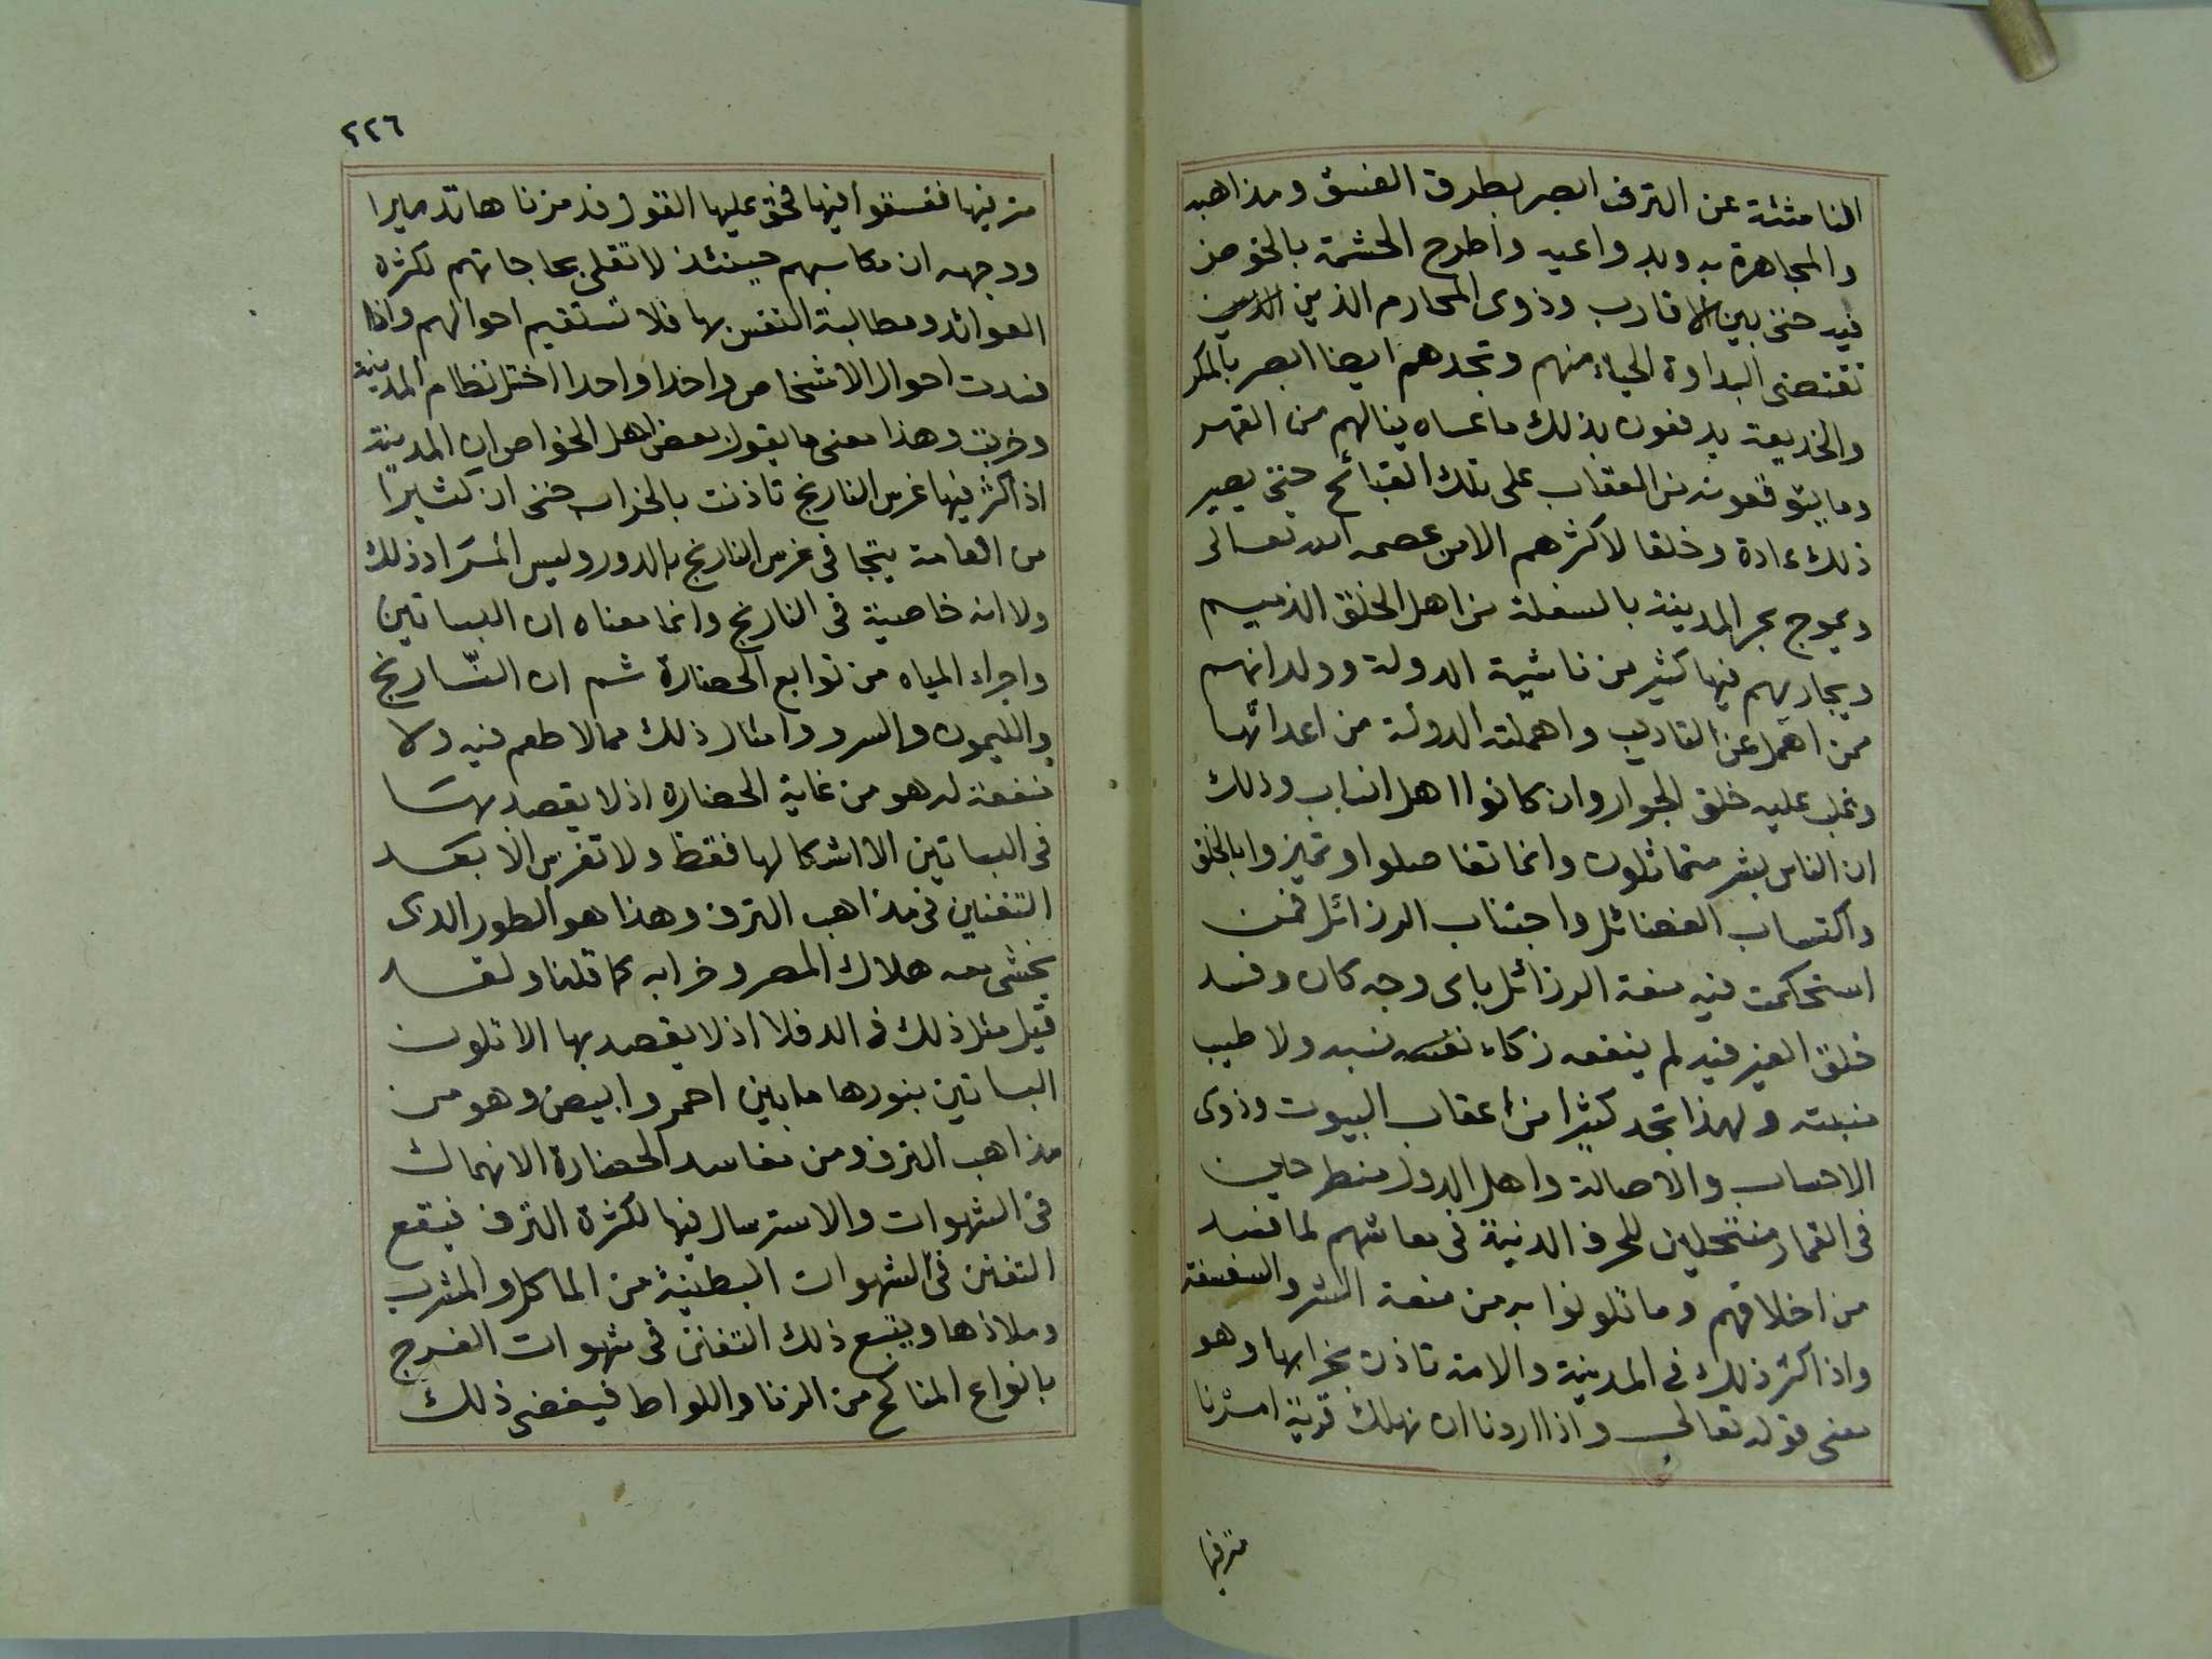 الناشئة عن الترف ابصر بطرق الفسق ومذاهبه
والمجاهرة به وبدواعيه واطرح الحشمة بالخوض
فيه حتى بين الاقارب وذوى المحارم الذين
تقتضى البداوة الحياء منهم وتجدهم ايضا ابصر بالمكر
والخديعة يدفعون بذلك ما عساه ينالهم من القهر
وما يتوقعونه من العقاب على تلك القبائح حتى يصير
ذلك عادة وخلقا لاكثرهم الا من عصمه الله تعالى
ويموج بحر المدينة بالسفلة من اهل الخلق الذميم
ويجاريهم فيها كثير من ناشية الدولة وولدانهم
ممن اهمل عن التاديب واهملته الدولة من اعدائها
وغلب عليه خلق الجوار وان كانوا اهل انساب وذلك
ان الناس بشر متماثلون وانما تفاضلوا وتميزوا بالخلق
واكتساب الفضائل واجتناب الرذائل فمن
استحكمت فيه صبغة الرذائل باى وجه كان وفسد
خلق الخير فيه لم ينفعه زكاء نسبه ولا طيب
منبته ولهذا تجد كثيرا من اعقاب البيوت وذوى
الاحساب والاصالة واهل الدول منطرحين
فى الغمار منتحلين للحرف الدنية فى معاشهم لما فسد
من اخلاقهم وما تلونوا به من صبغة الشر والسفسفة
واذا كثر ذلك فى المدينة والامة تاذن بخرابها وهو
معنى قوله تعالى واذا اردنا ان نهلك قرية امرنا
مترفيها
٢٢٦
مترفيها ففسقوا فيها فحق عليها القول فدمرناها تدميرا
ووجهه ان مكاسبهم حينئذ لا تفى بحاجاتهم لكثرة
العوائد ومطالبة النفس بها فلا تستقيم احوالهم واذا
فسدت احوال الاشخاص واحدا واحدا اختل نظام المدينة
وخربت وهذا معنى ما يقول بعض اهل الخواص ان المدينة
اذا كثر فيها غرس النارنج تاذنت بالخراب حتى ان كثيرًا
من العامة يتجا فى غرس النارنج بالدور وليس المراد ذلك
ولا انه خاصية فى النارنج وانما معناه ان البساتين
واجراء المياه من توابع الحضارة ثم ان النّارنج
والليمون والسرو وامثال ذلك مما لا طعم فيه ولا
منفعة له هو من غاية الحضارة اذ لا يقصد بها
فى البساتين الا اشكالها فقط ولا تغرس الا بعد
التفنين فى مذاهب الترف وهذا هو الطور الذى
يخشى معه هلاك المصر وخرابه كما قلنا ولقد
قيل مثل ذلك فى الدفلا اذ لا يقصد بها الا تلون
البساتين بنورها ما بين احمر وابيض وهو من
مذاهب الترف ومن مفاسد الحضارة الانهماك
فى الشهوات والاسترسال فيها لكثرة الترف فيقع
التفنن فى الشهوات البطنية من الماكل والمشرب
وملاذها ويتبع ذلك التفنن فى شهوات الفرج
بانواع المناكح من الزنا واللواط فيفضى ذلك